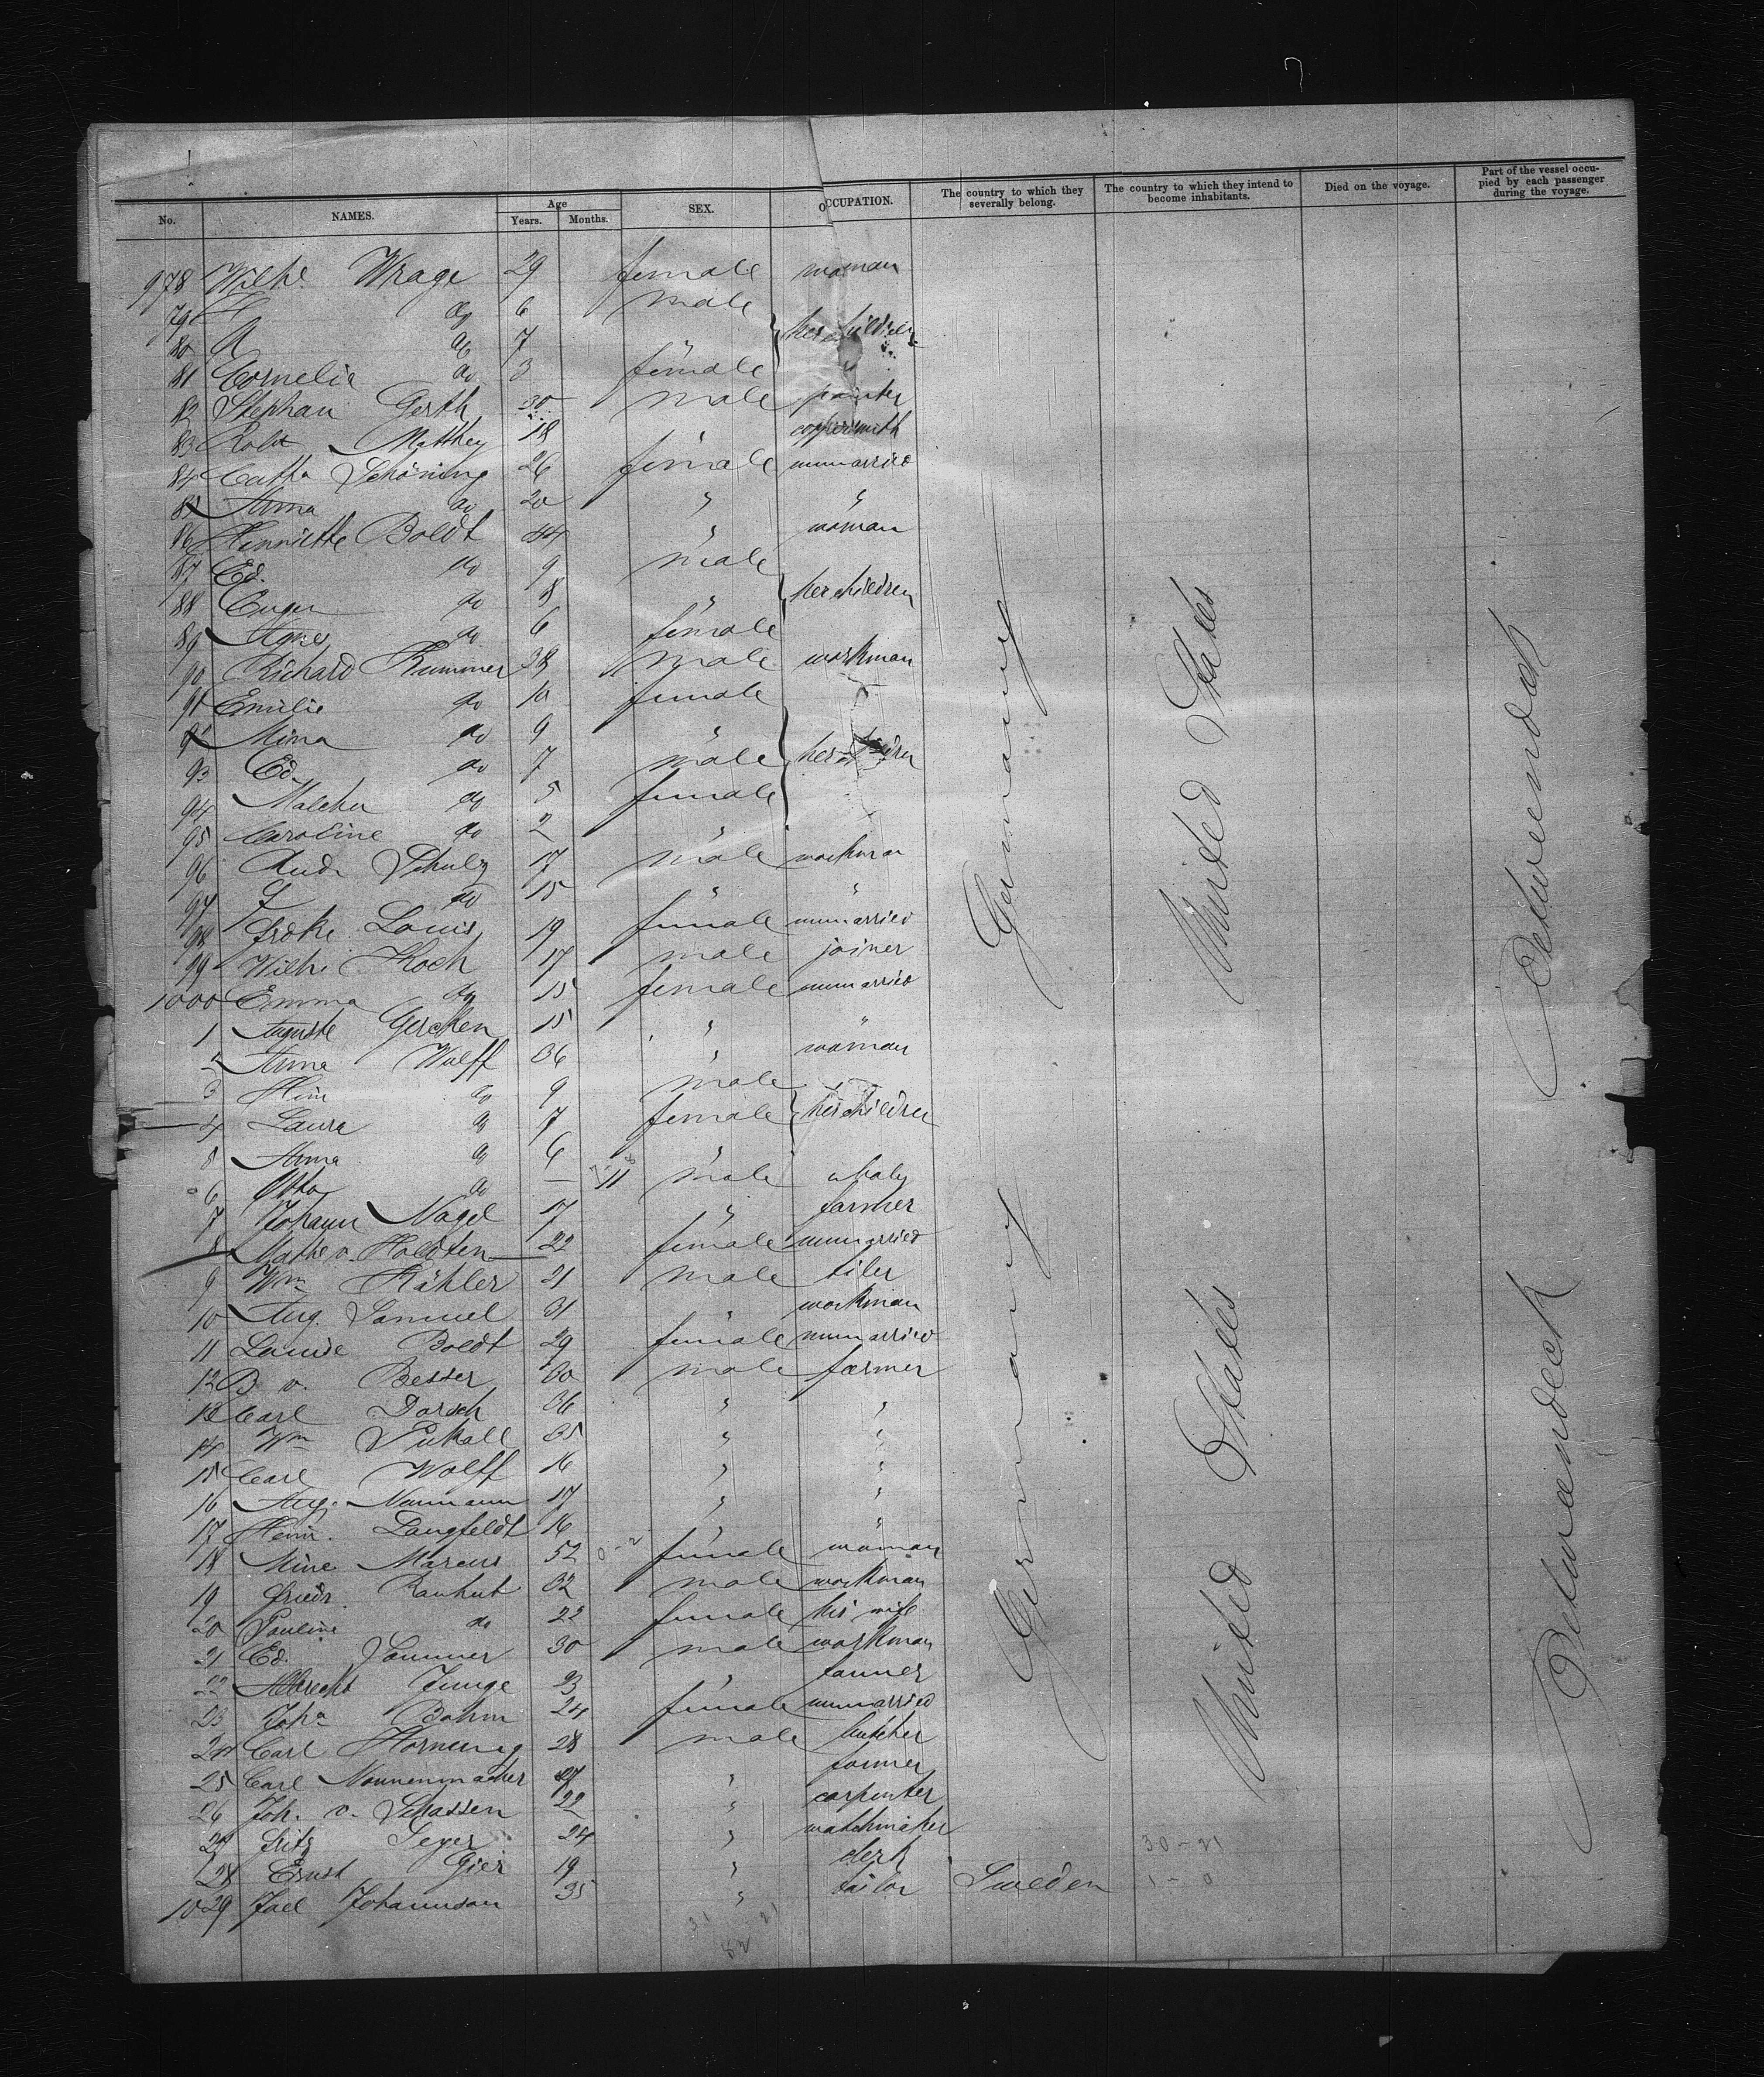 No. NAMES. Age Years. Months. SEX. OCCUPATION. The country to which they severally belong. The country to which they intend to become inhabitants. Died on the voyage. Part of the vessel occupied by each passenger during the voyage.
978 Wilhe Wrage 29 female woman
79 H do 6 male
80 A do 7 " her children
81 Cornelia do 3 female
82 Stephan Gerth 30 male painter
83 Robt Matthey 18 " coppersmith
84 Catha Schöning 26 female unmarried
85 Anna do 20 " "
86 Henriette Boldt 44 " woman
87 Ed. do 9 male
88 Eugen do 8 " her children
89 Agnes do 6 female
90 Richard Kummer 38 male workman
91 Emilie do 10 female
92 Mina do 9 "
93 Ed. do 7 male her children
94 do 5 female
95 Caroline do 2 "
96 Rud. Schulz 17 male workman
97 F do 15 " "
98 Fredke Louis 19 female unmarried
99 Wilh. Koch 17 male joiner
1000 Emma do 15 female unmarried
1 Auguste Gercken 15 " "
2 Anna Wulff 36 " woman
3 Hein do 9 male
4 Laura do 7 female her children
5 Anna do 6 "
6 Otto do — 11 male a baby
7 Johann Nagel 17 " farmer
8 Mathe v. Holdten 22 female unmarried
9 Wm Kähler 21 male tiler
10 Aug. Samuel 31 " workman
11 Louise Boldt 29 female unmarried
12 B v. Besser 30 male farmer
13 Carl Dorsch 36 " "
14 Wm Pukall 35 " "
15 Carl Wolff 16 " "
16 Aug. Naumann 17 " "
17 Heinr. Langfeldt 16 " "
18 Mine Marcus 52 female woman
19 Friedr. Rauhut 32 male workman
20 Pauline do 22 female his wife
21 Ed. Sommer 30 male workman
22 Albrecht Junge 23 " farmer
23 Joha Bohm 24 female unmarried
24 Carl Hornung 28 male butcher
25 Carl Nonnenmacher 27 " farmer
26 Joh. v. Schassen 22 " carpenter
27 Fritz Seyer 24 " watchmaker
28 Ernst Gier 19 " clerk
1029 Joel Johannson 35 " tailor Sweden
Germany
United States
Betweendeck
Germany
United States
Betweendeck
30-21
1-0
31 21
52